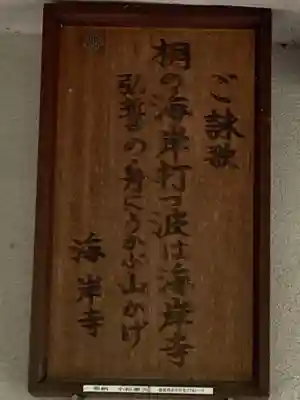 ご詠歌
桐の海岸打つ波は海岸寺
弘誓の舟にうかぶ山かげ
海岸寺